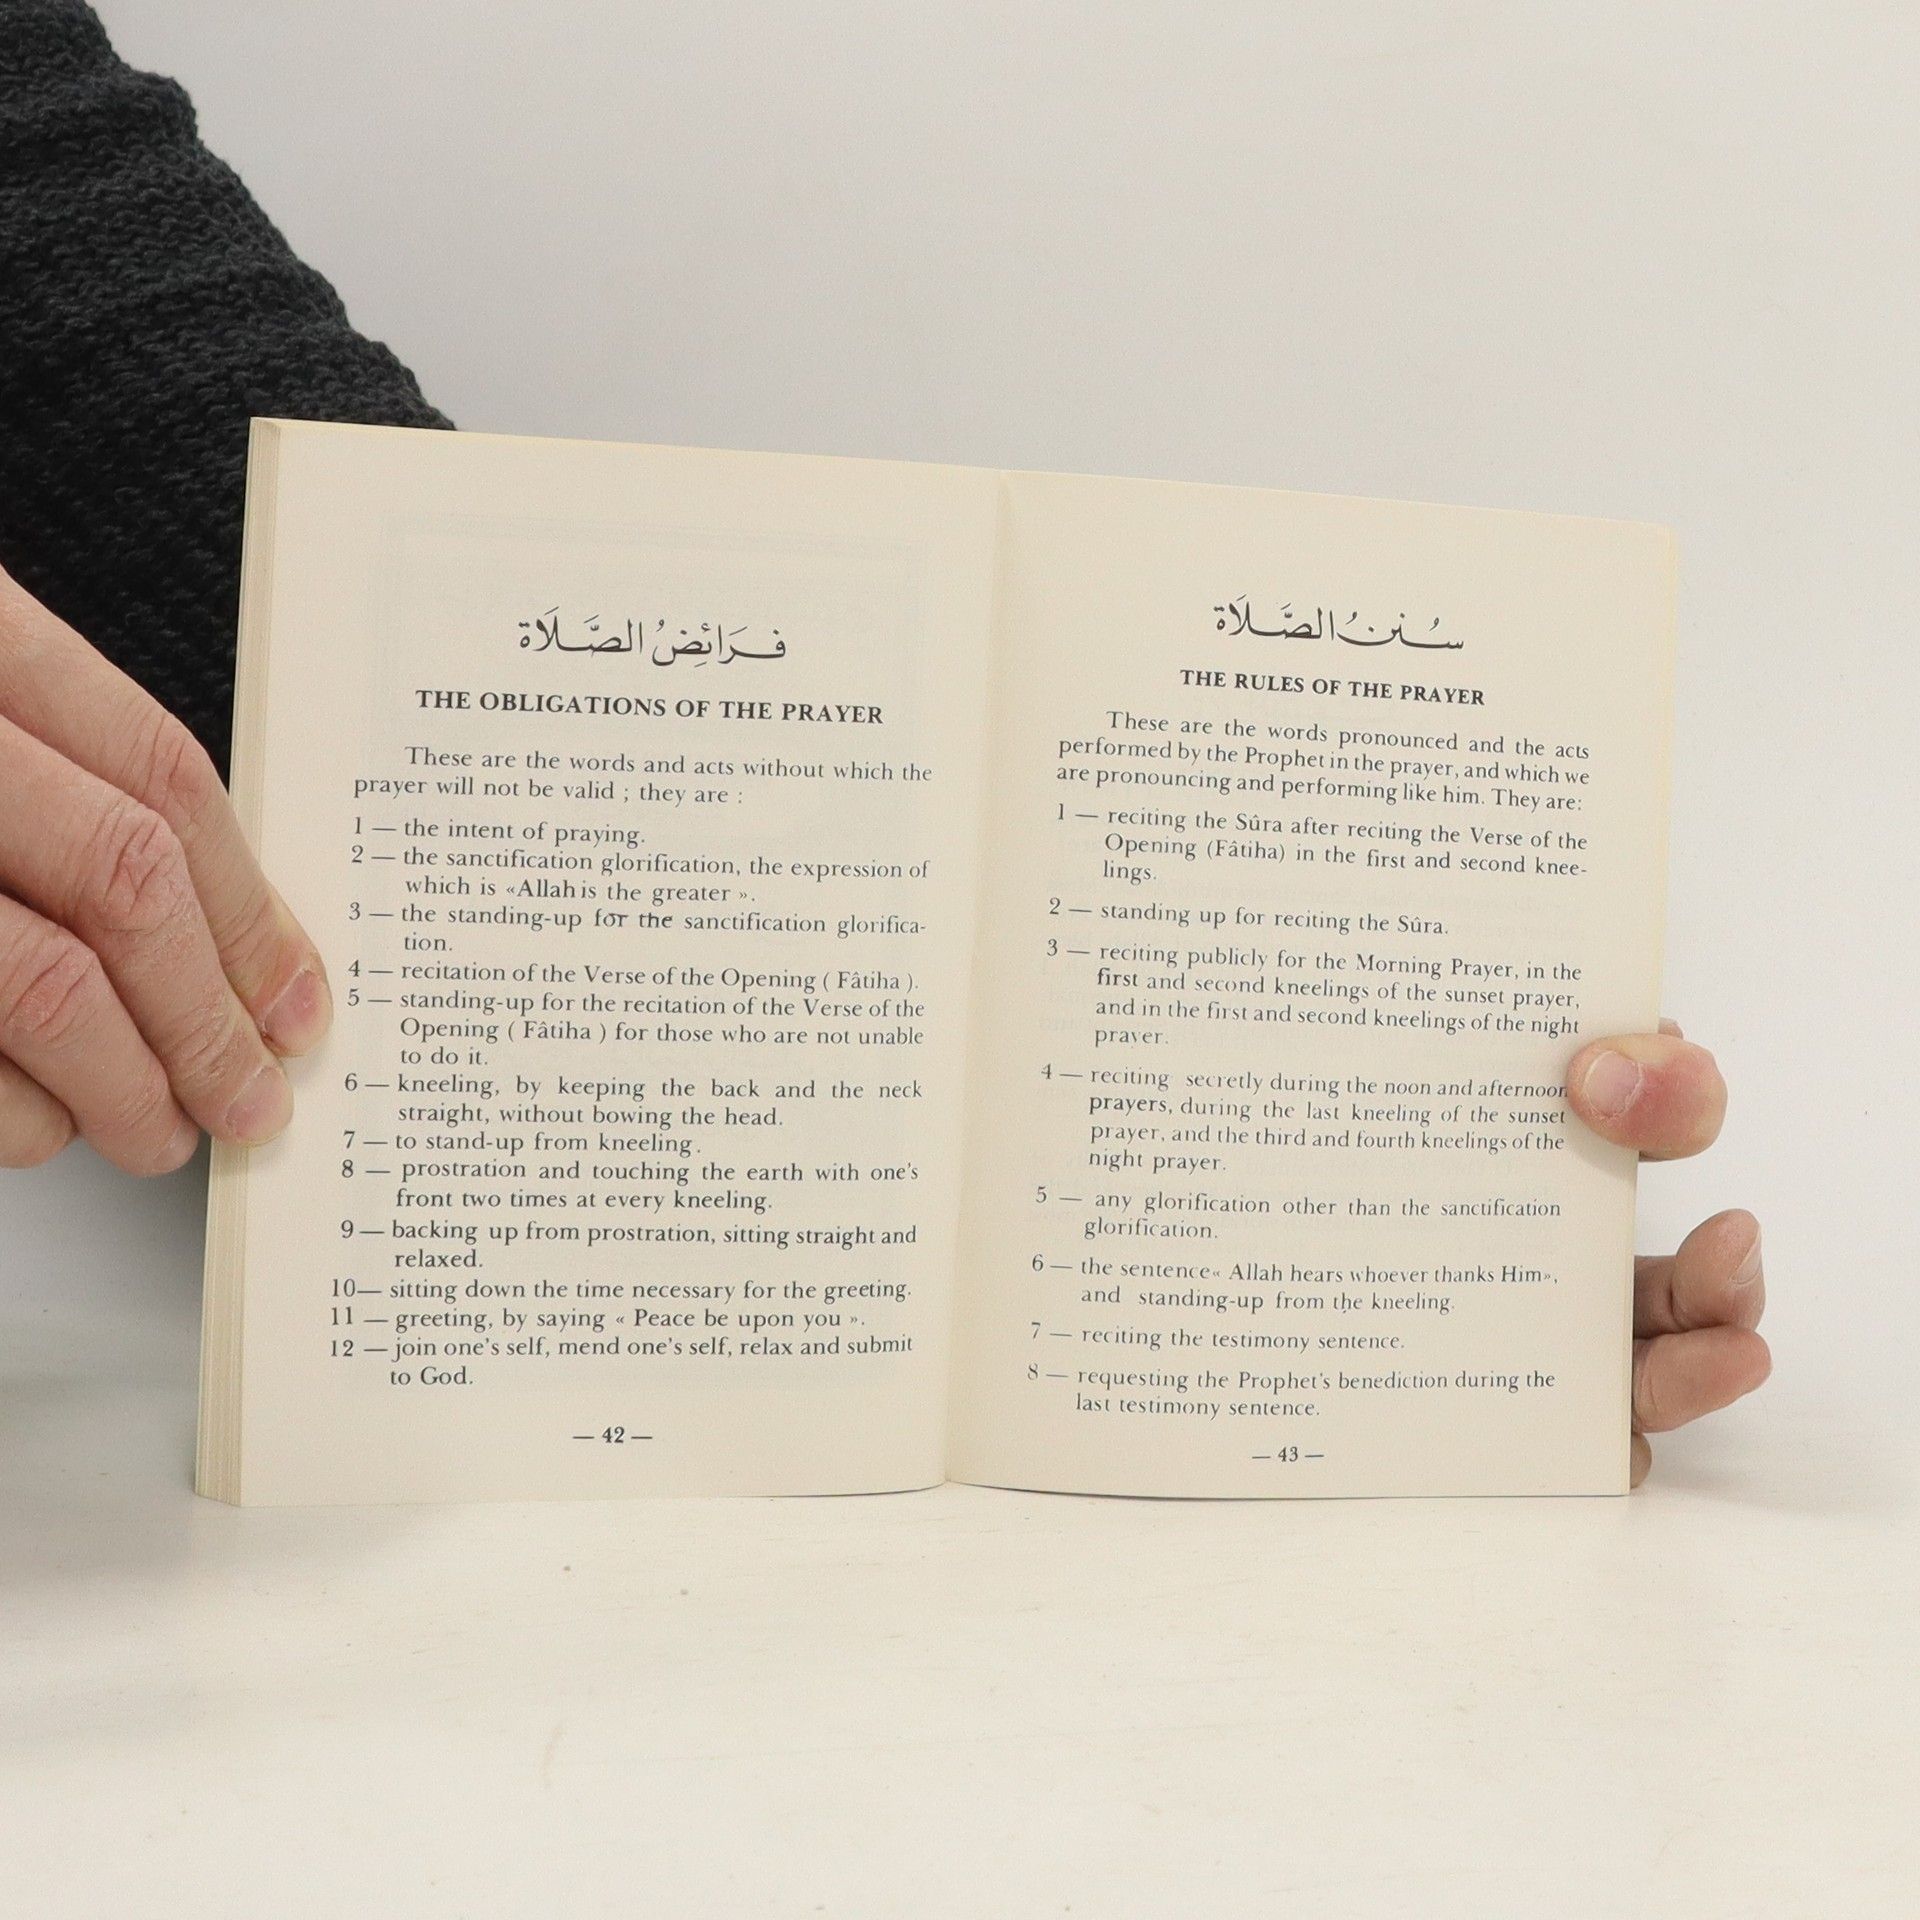 فَرَائِضُ الصَّلَاة
THE OBLIGATIONS OF THE PRAYER
These are the words and acts without which the
prayer will not be valid ; they are :
1 — the intent of praying.
2 — the sanctification glorification, the expression of
which is «Allah is the greater ».
3 — the standing-up for the sanctification glorifica-
tion.
4 — recitation of the Verse of the Opening ( Fâtiha ).
5 — standing-up for the recitation of the Verse of the
Opening ( Fâtiha ) for those who are not unable
to do it.
6 — kneeling, by keeping the back and the neck
straight, without bowing the head.
7 — to stand-up from kneeling.
8 — prostration and touching the earth with one's
front two times at every kneeling.
9 — backing up from prostration, sitting straight and
relaxed.
10— sitting down the time necessary for the greeting.
11 — greeting, by saying « Peace be upon you ».
12 — join one's self, mend one's self, relax and submit
to God.
— 42 —
سُنَنُ الصَّلَاة
THE RULES OF THE PRAYER
These are the words pronounced and the acts
performed by the Prophet in the prayer, and which we
are pronouncing and performing like him. They are:
1 — reciting the Sûra after reciting the Verse of the
Opening (Fâtiha) in the first and second knee-
lings.
2 — standing up for reciting the Sûra.
3 — reciting publicly for the Morning Prayer, in the
first and second kneelings of the sunset prayer,
and in the first and second kneelings of the night
prayer.
4 — reciting secretly during the noon and afternoon
prayers, during the last kneeling of the sunset
prayer, and the third and fourth kneelings of the
night prayer.
5 — any glorification other than the sanctification
glorification.
6 — the sentence« Allah hears whoever thanks Him»,
and standing-up from the kneeling.
7 — reciting the testimony sentence.
8 — requesting the Prophet's benediction during the
last testimony sentence.
— 43 —